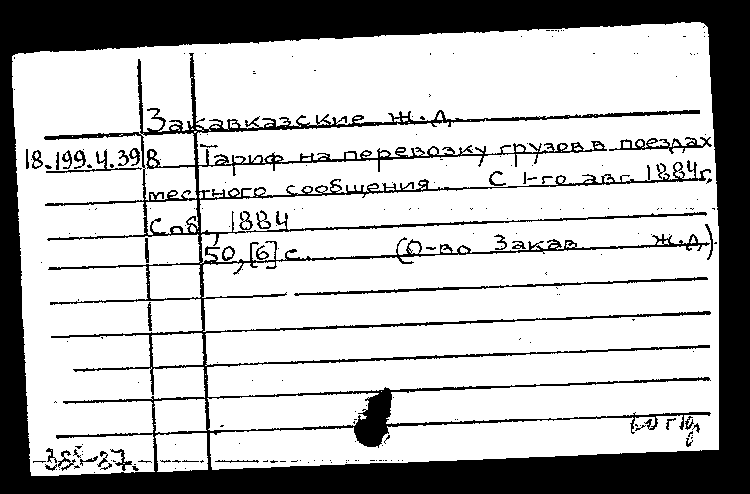 Закавказские ж.д.
18.199.4.398 Тариф на перевозку грузов в поездах
местного сообщения. С 1-го авг. 1884 г.
Спб., 1884
50, [6] с. (О-во Закав ж.д.)
385-87.